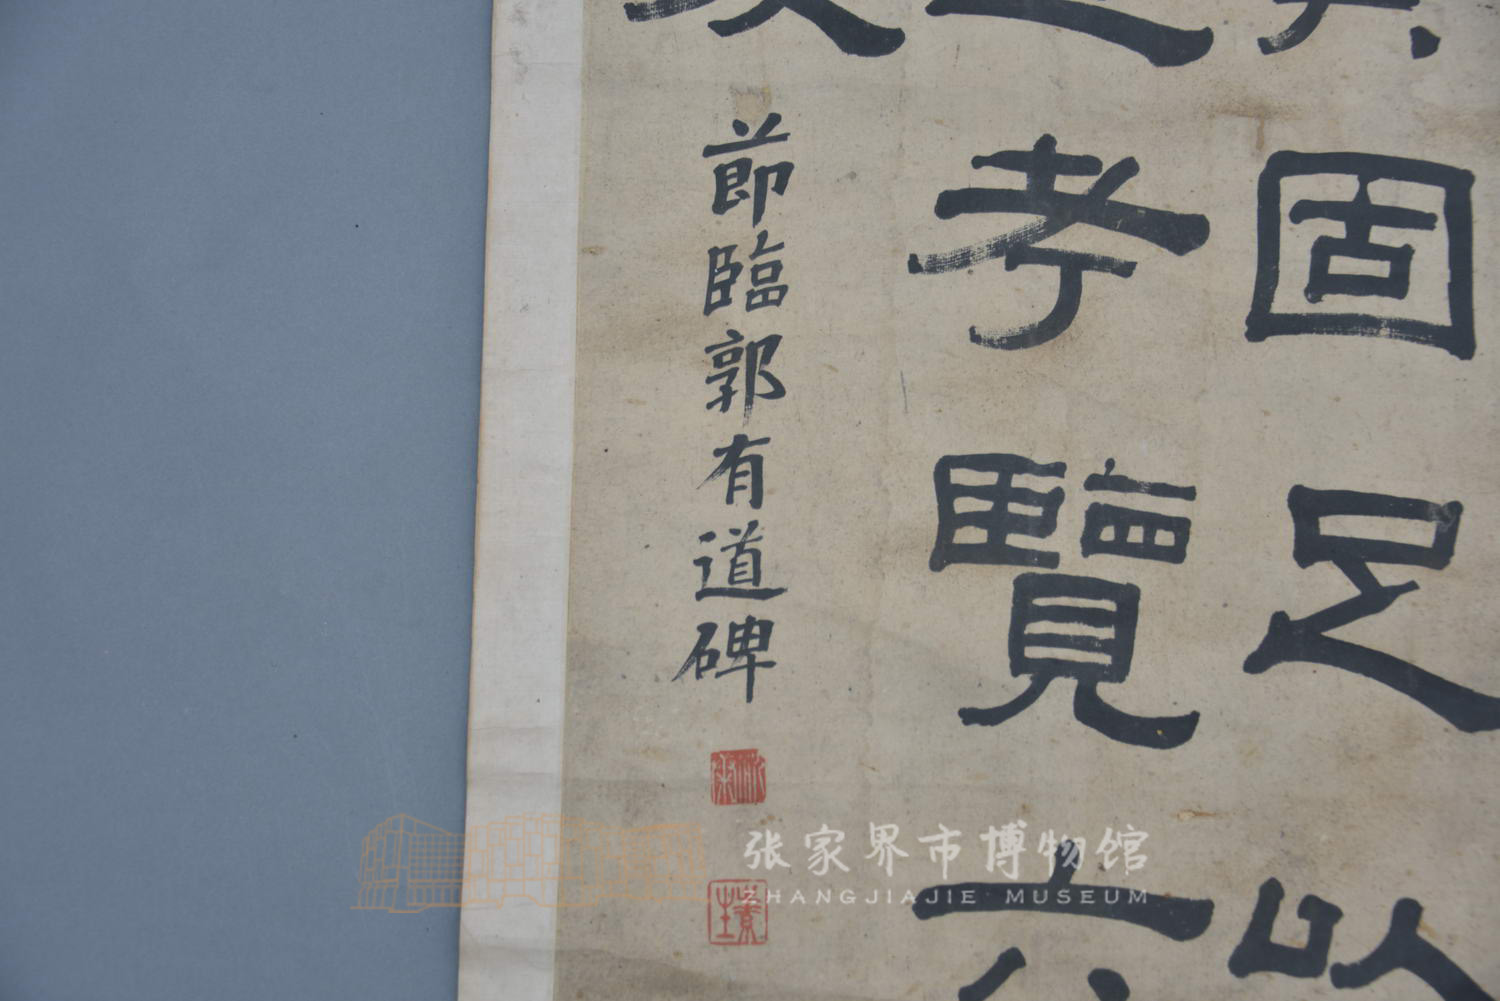 固足以
考覽六
節臨郭有道碑
张家界市博物馆
ZHANGJIAJIE MUSEUM